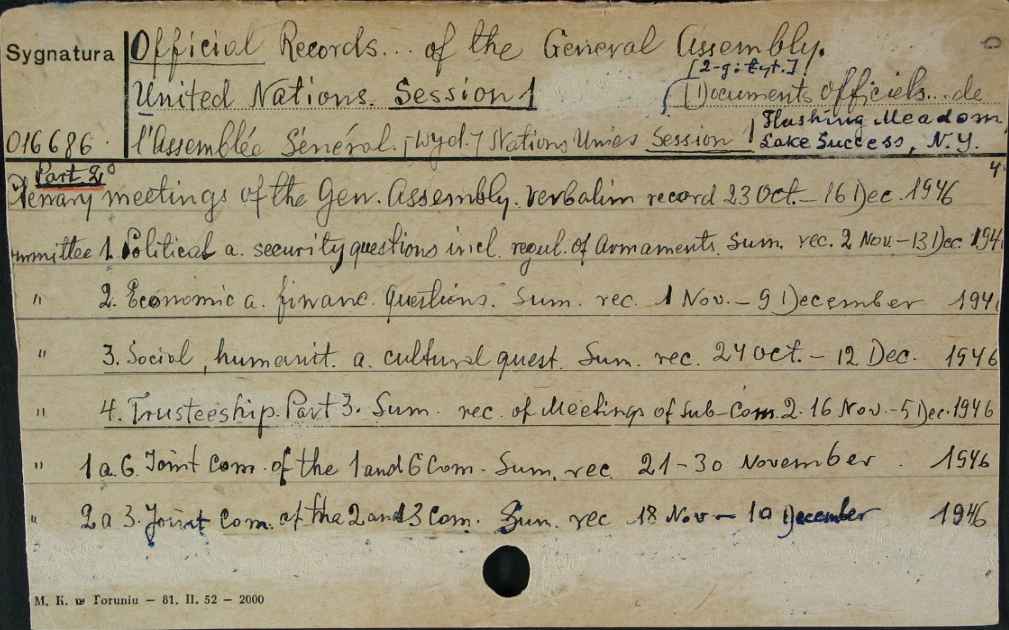 Sygnatura
Official Records... of the General Assembly.
[2-gi tyt.]
United Nations. Session 1
(Documents officiels... de
016686.
l'Assemblée Général. [wyd.] Nations Unies Session 1
Flushing Meadow
Lake Success, N.Y.
Part 2
4°
Plenary meetings of the Gen. Assembly. Verbatim record 23 Oct. – 16 Dec. 1946
ommittee 1. Political a. security questions incl. regul. of Armaments. Sum. rec. 2 Nov. – 13 Dec. 194
" 2. Economic a. financ. Questions. Sum. rec. 1 Nov. – 9 December 194
" 3. Social, humanit. a. cultural quest. Sum. rec. 24 Oct. – 12 Dec. 1946
" 4. Trusteeship. Part 3. Sum. rec. of Meetings of Sub-Com. 2. 16 Nov. – 5 Dec. 1946
" 1 a 6. Joint Com. of the 1 and 6 Com. Sum. rec. 21–30 November. 1946
" 2 a 3. Joint Com. of the 2 and 3 Com. Sum. rec 18 Nov – 10 December 1946
M. K. w Toruniu — 81. II. 52 — 2000